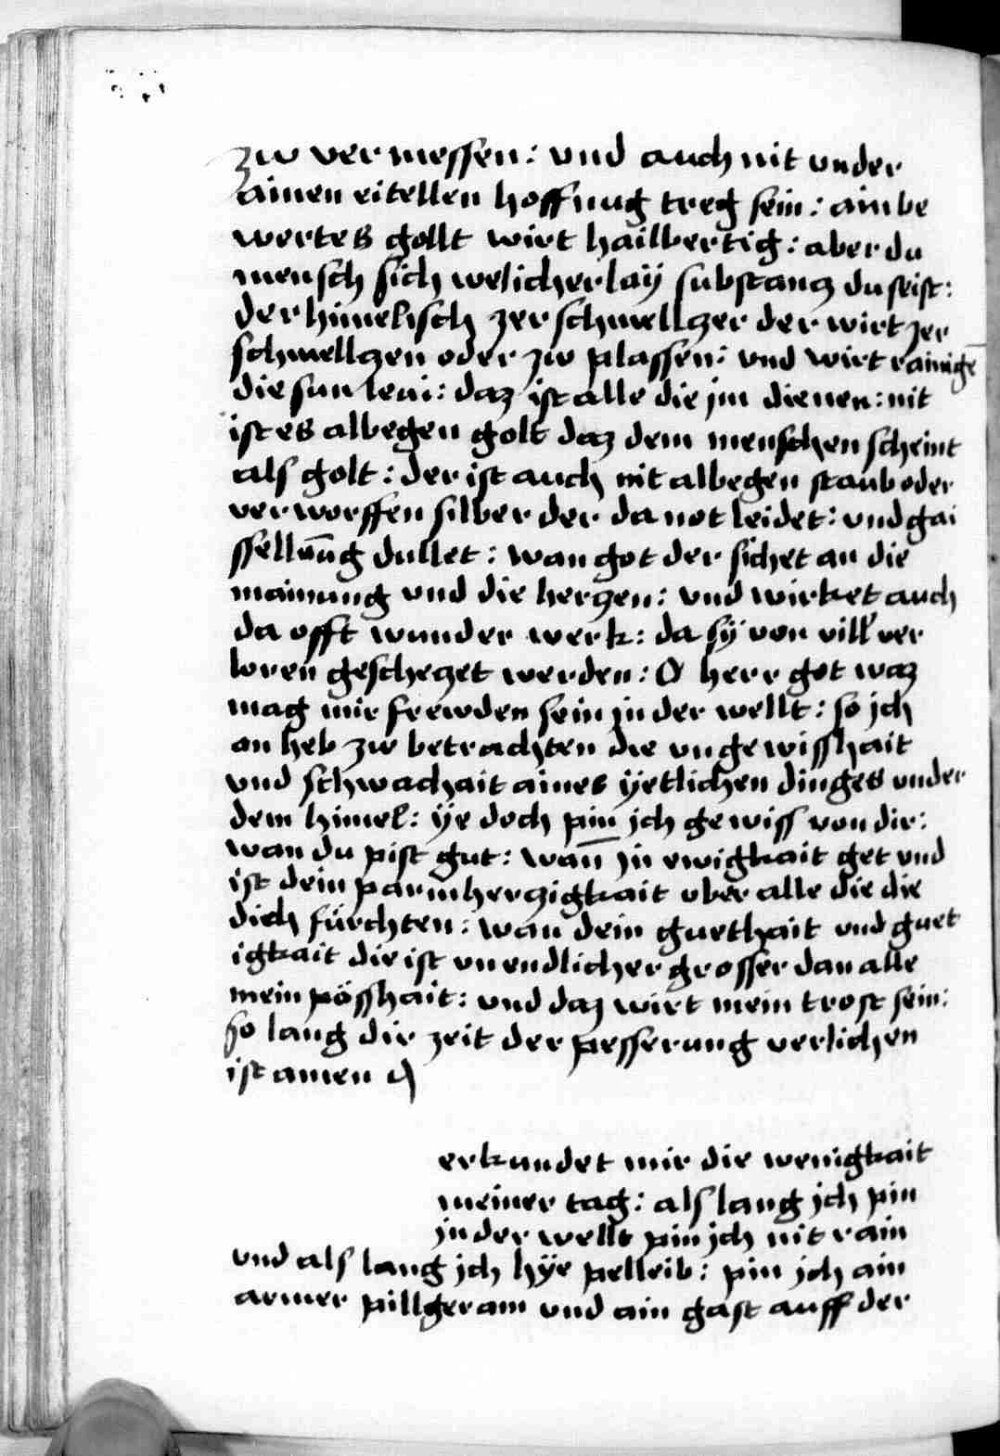 zw ver messen: vnd auch nit vnder
ainen eitellen hoffnug treg sein: ain be
wertes gollt wirt hailbertig: aber du
mensch sich welicherlaÿ substanz du seist:
der himelisch zerschmellczer der wirt zer
schmellczen oder zw plassen: vnd wirt rainigē
die sun leui: daz ist alle die jm dienen: nit
ist es albegen golt daz dem menschen scheint
als golt: der ist auch nit albegen staub oder
verworffen silber der da not leidet: vnd gai
ssellūng dullet: wan got der sichet an die
mainung vnd die herczen: vnd wirket auch
da offt wunder werk: da sÿ von vill ver
loren gescheczet werden: O herr got waz
mag mir frewden sein in der wellt: so jch
an heb zw betrachten die vngewisshait
vnd schwachait aines ÿetlichen dinges vnder
dem himel: ÿe doch pin jch gewiss von dir:
wan du pist gut: wan̄ in ewigkait get vnd
ist dein parmherczigkait vber alle die die
dich fürchten: wan dein guethait vnd guet
igkait die ist vnendlicher grosser dan alle
mein pösshait: vnd daz wirt mein trost sein:
so lang die zeit der pesserung verlichen
ist amen
erkundet mir die wenigkait
meiner tag: als lang jch pin
in der wellt pin jch nit rain
vnd als lang jch hÿe pelleib: pin jch ain
armer pillgeram vnd ain gast auff der